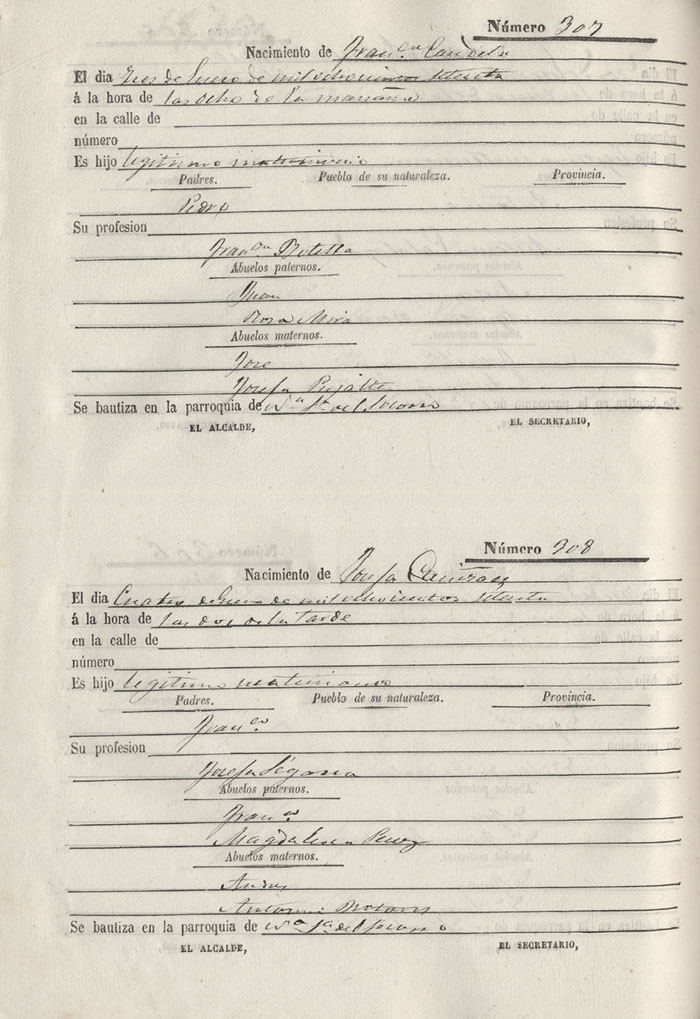 Número 307
Nacimiento de Fran.ca Candela
El dia tres de Enero de mil ochocientos setenta
á la hora de las ocho de la mañana
en la calle de
número
Es hijo legitimo matrimonio
Padres. Pueblo de su naturaleza. Provincia.
Pedro
Su profesion
Fran.ca Botella
Abuelos paternos.
Juan
Rosa Mira
Abuelos maternos.
Jose
Josefa Pujalte
Se bautiza en la parroquia de N.a S.a del Socorro
EL ALCALDE, EL SECRETARIO,
Número 308
Nacimiento de Josefa
El dia Cuatro de Enero de mil ochocientos setenta
á la hora de las dos de la tarde
en la calle de
número
Es hijo legitimo matrimonio
Padres. Pueblo de su naturaleza. Provincia.
Fran.co
Su profesion
Josefa Segarra
Abuelos paternos.
Fran.co
Magdalena Perez
Abuelos maternos.
Andres
Antonia
Se bautiza en la parroquia de N.a S.a del Socorro
EL ALCALDE, EL SECRETARIO,